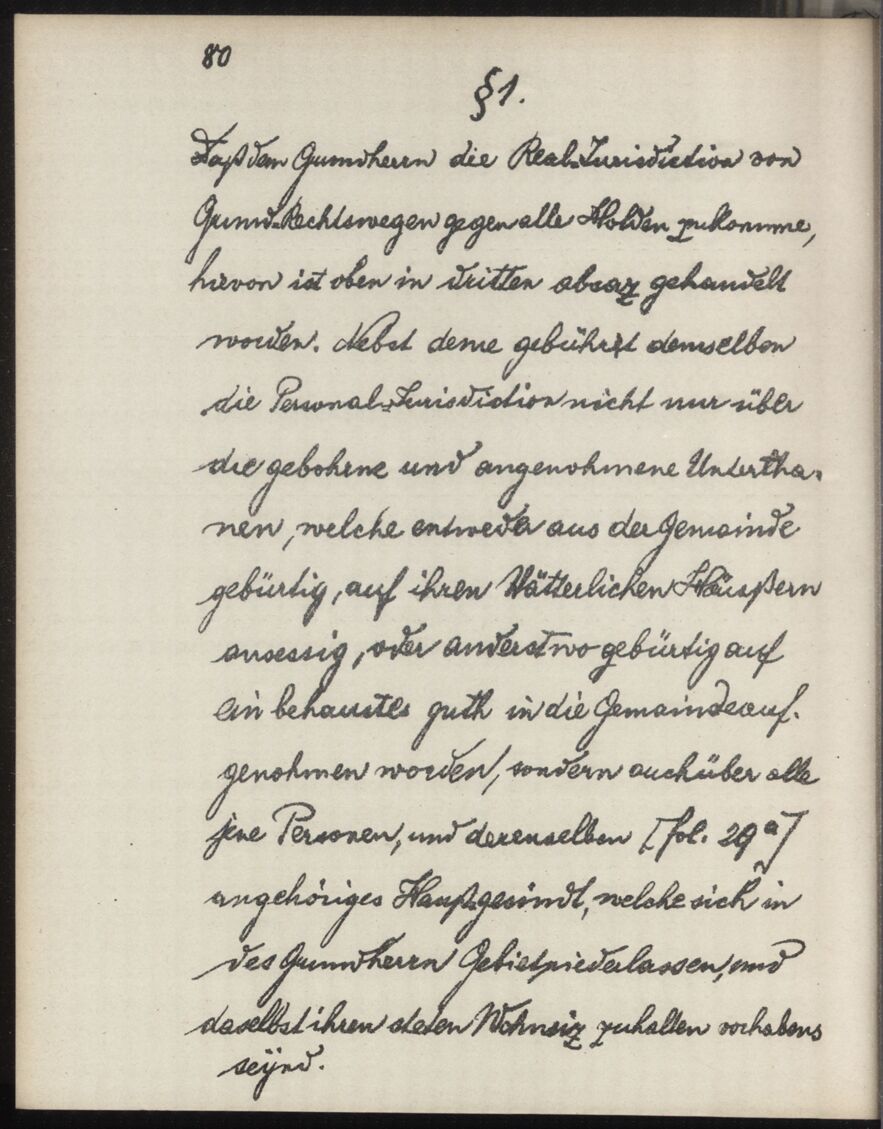 80
§1.
Daß dem Grundherrn die Real-Jurisdiction von
Grund-Rechtswegen gegen alle Holden zukomme,
hievon ist oben in dritten absaz gehandelt
worden. Nebst deme gebühret demselben
die Personal-Jurisdiction nicht nur über
die gebohrne und angenohmene Untertha-
nen, welche entweder aus der Gemainde
gebürtig, auf ihren Vätterlichen Häußern
ansessig, oder anderstwo gebürtig auf
ein behaustes guth in die Gemainde auf-
genohmen worden, sondern auch über alle
jene Personen, und derenselben [fol. 29a]
angehöriges Haußgesindt, welche sich in
des Grundherrn Gebiet niederlassen, und
daselbst ihren steten Wohnsiz zuhalten vorhabens
seÿnd.